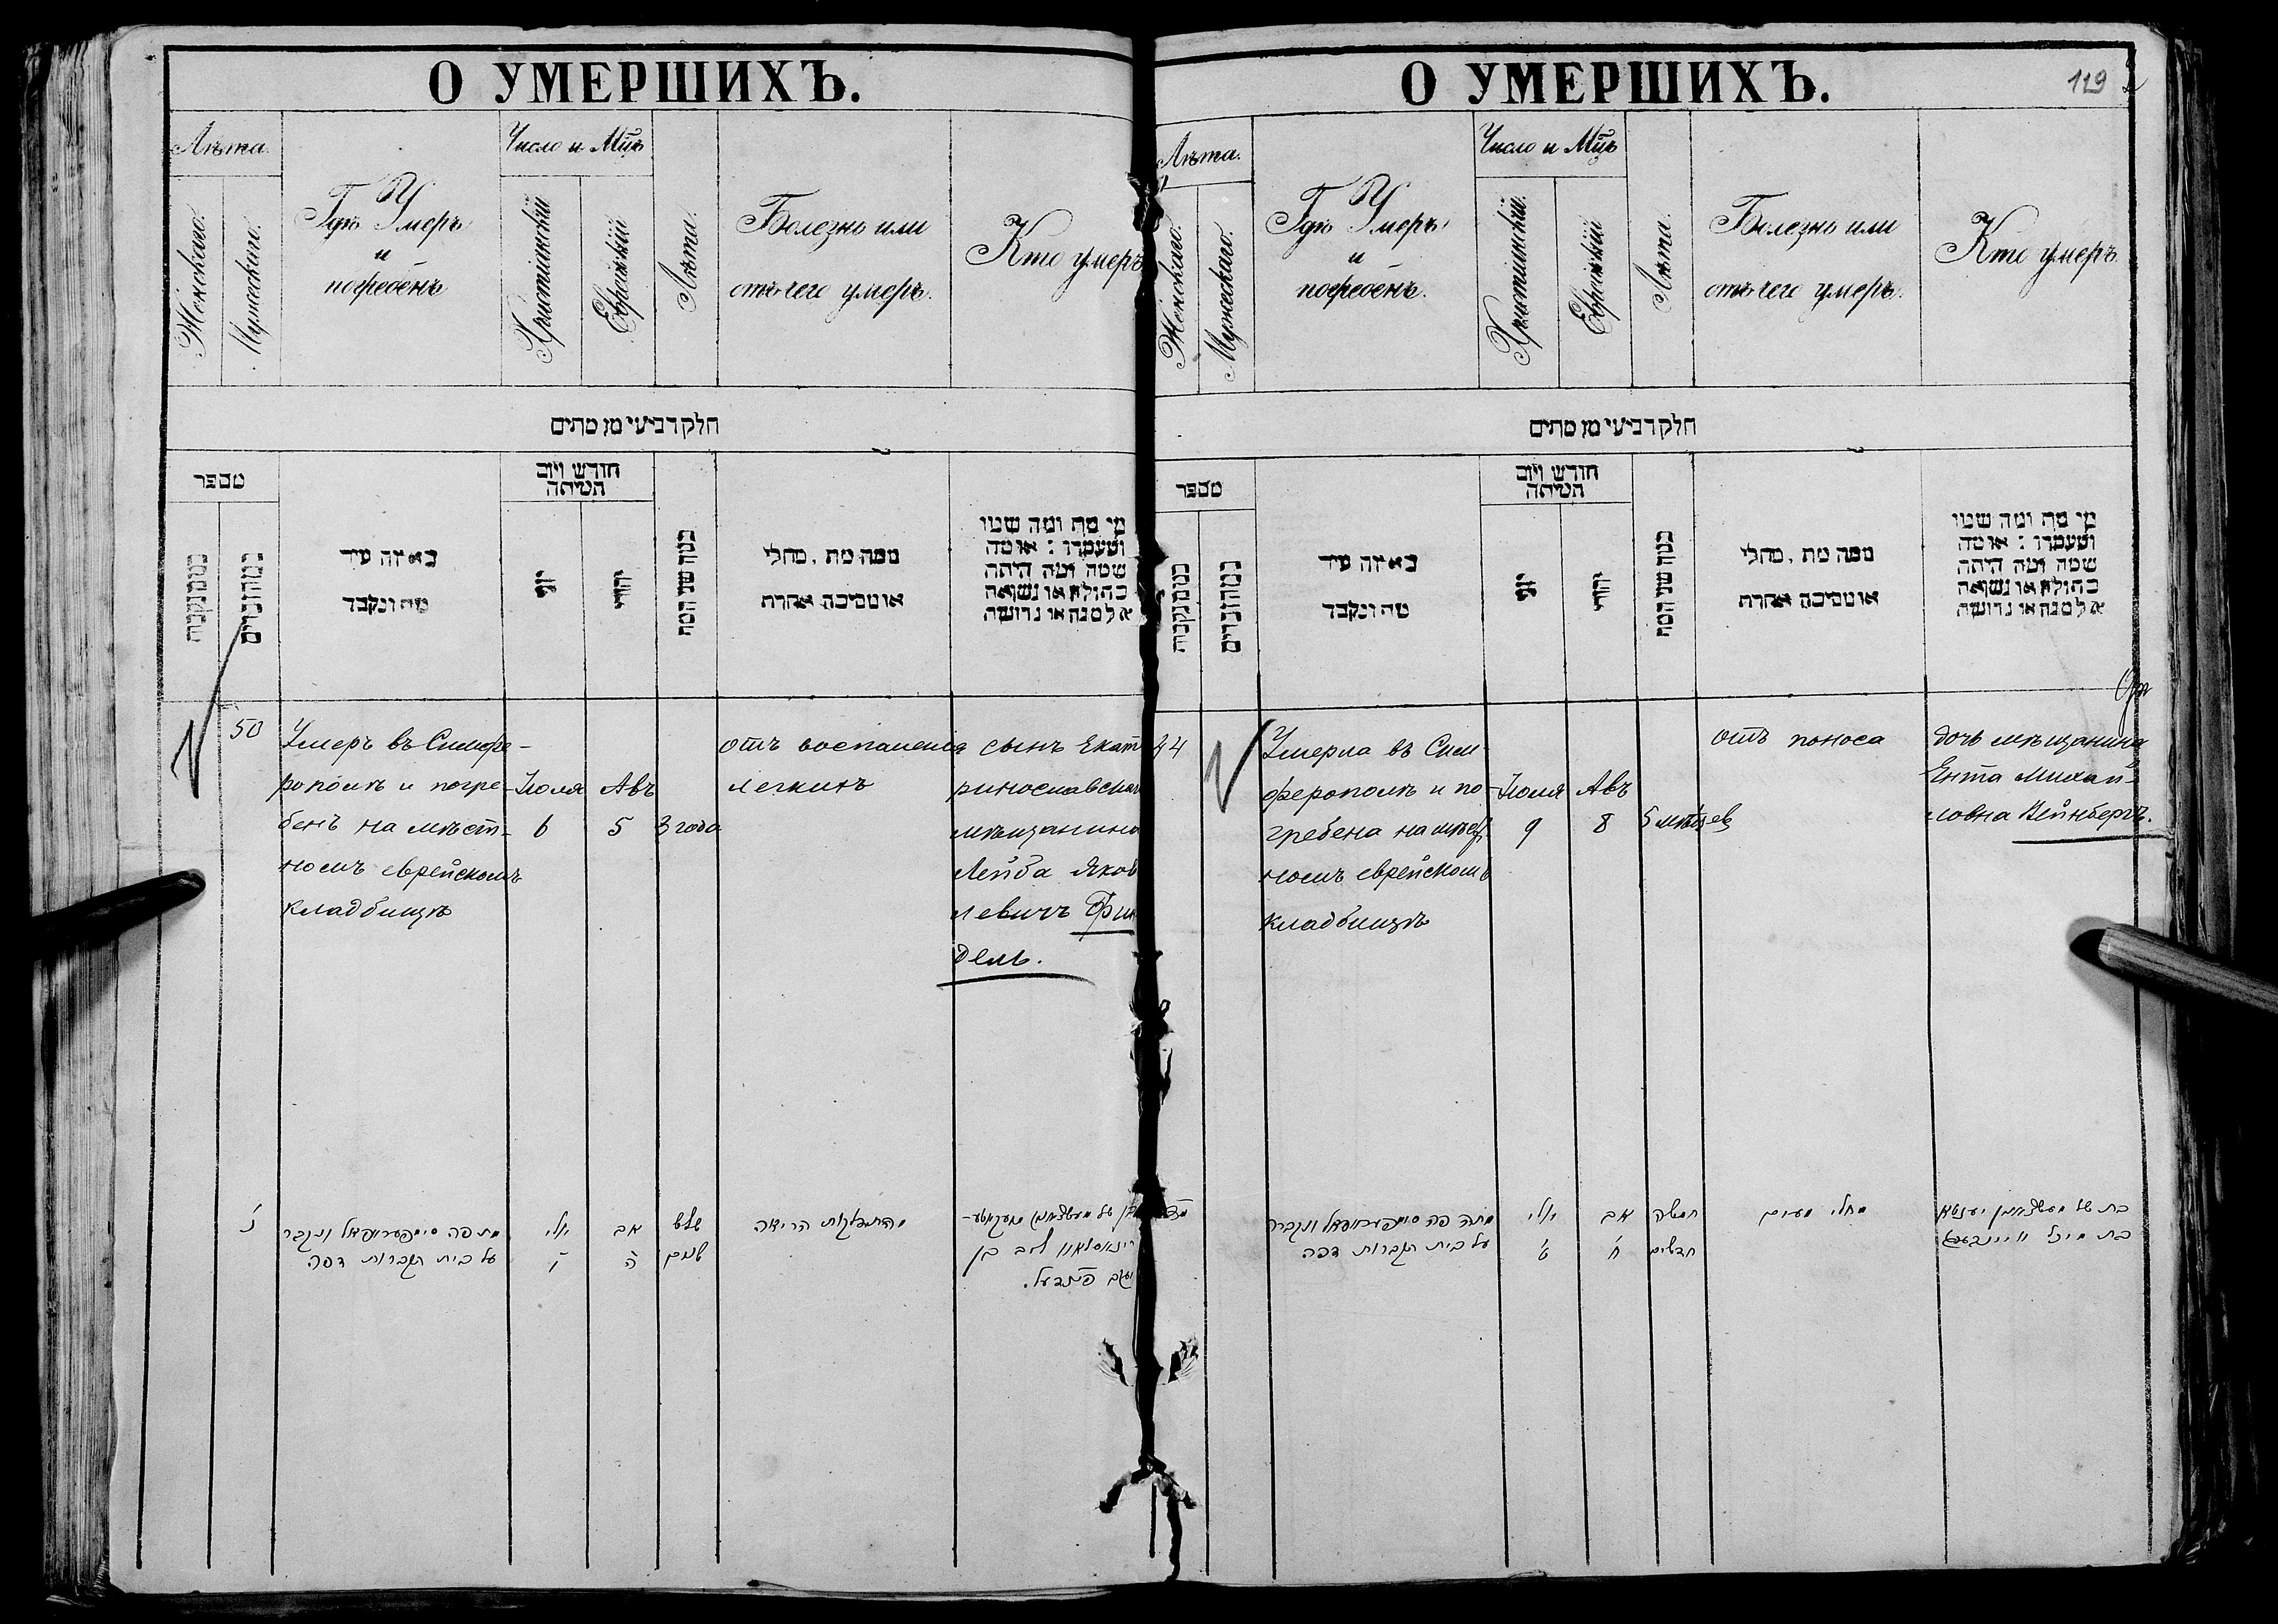 О УМЕРШИХЪ.
Лѣта.
Женскаго.
Мужескаго.
Гдѣ Умеръ
и
погребенъ
Число и Мцъ
Христіянскій
Еврейскій
Лѣта.
Болезнь или
отъ чего умеръ.
Кто умеръ
חלק רביעי מן מתים
מספר
כמה נקבות
כמה זכרים
באיזה עיר
מת ונקבר
חודש ויום
המיתה
יוני
יהודי
כמה שני המת
ממה מת, מחלי
או מסיבה אחרת
מי מת ומה שמו
ומעמדו : או מה
שמה ומה היתה
בתולה או נשואה
אלמנה או גרושה
50
Умеръ въ Симфе-
рополѣ и погре-
бенъ на мѣст-
номъ еврейскомъ
кладбищѣ
Іюля
6
Авъ
5
3 года
отъ воспаленія
легкихъ
сынъ Екат
ринославскаго
мѣщанина
Лейба Яков
левичъ Фри
дель.
נ'
מת פה סימפעראפאל ונקבר
על בית הקברות דפה
יולי
ו'
אב
ה'
שלש
שנים
מהתדלקות הריאה
בן של מעשצאנין יעקאטע-
רינאסלאוו ליב בן
יעקב פרידעל.
О УМЕРШИХЪ.
119
Лѣта.
Женскаго.
Мужескаго.
Гдѣ Умеръ
и
погребенъ.
Число и Мцъ
Христіянскій.
Еврейскій
Лѣта.
Болезнь или
отъ чего умеръ.
Кто умеръ
חלק רביעי מן מתים
מספר
כמה נקבות
כמה זכרים
באיזה עיר
מת ונקבר
חודש ויום
המיתה
יוני
יהודי
כמה שני המת
ממה מת, מחלי
או מסיבה אחרת
מי מת ומה שמו
ומעמדו : או מה
שמה ומה היתה
בתולה או נשואה
אלמנה או גרושה
44
Умерла въ Сим-
ферополѣ и по-
гребена на мѣст
номъ еврейскомъ
кладбищѣ
Іюля
9
Авъ
8
5 мѣсяцев
отъ поноса
дочь мѣщанина
Ента Михай-
ловна Вейнбергъ.
מד
מתה פה סימפעראפאל ונקברה
על בית הקברות דפה
יולי
ט'
אב
ח'
חמשה
חדשים
מחלי מעים
בת של מעשצאנין יענטא
בת מיכל וויינבערג